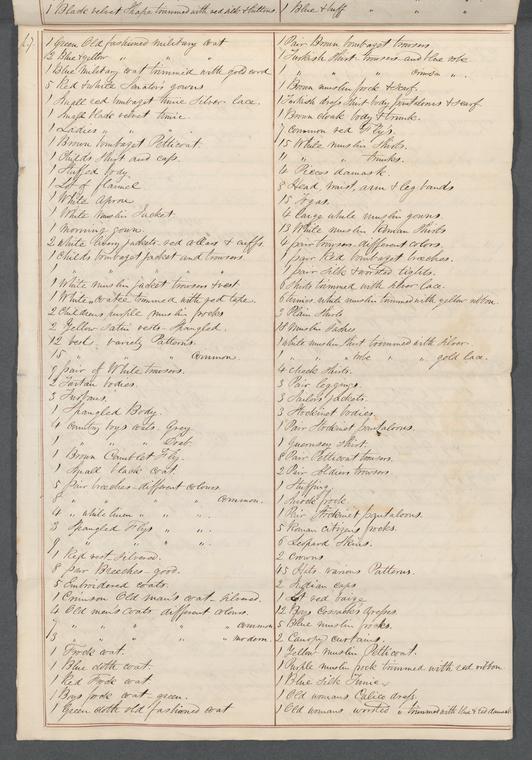 1 Black velvet Shape trimmed with red silk & buttons.
1 Blue & buff " " "
67.
1 Green Old fashioned military coat
12 Blue & yellow " " "
1 Blue military coat trimmed with gold cord
5 Red & White Senators gowns
1 Small red bombazet tunic Silver lace.
1 Small black velvet tunic
1 Ladies " " " .
1 Brown bombazet Petticoat.
1 Childs Shirt and cap.
1 Stuffed body.
1 Lot of flannel
1 White Apron
1 White muslin Jacket.
1 Morning gown.
2 White livery jackets, red collars & cuffs.
1 Childs bombazet jacket and trowsers.
1 " " " " "
1 White muslin jacket trowsers & vest.
1 White coatee trimmed with red tape.
2 Childrens purple muslin frocks
2 Yellow Satin vests - Spangled.
12 vests. variety Patterns.
15 " " " common.
9 pair of White trowsers.
2 Tartan bodies.
3 Turbans.
1 Spangled Body.
4 Country boys coats. Grey.
1 " " " Drab.
1 Brown Camblet Fly.
1 Small black coat.
5 pair breeches - different colours.
8 " " " " common.
4 " white linen " "
3 Spangled Flys " " .
9 " " " .
1 Red vest Silvered.
8 pair Breeches - good.
5 Embroidered coats.
1 Crimson Old man's coat - Silvered.
4 Old men's coats different colours.
7 " " " " " common
3 " " " " " modern.
1 Frock coat.
1 Blue cloth coat.
1 Red Frock coat.
1 Boys frock coat - green.
1 Green cloth old fashioned coat
1 Pair Brown bombazet trowsers.
1 Turkish Shirt trowsers and blue robe
1 " " " " crimson " .
1 Brown muslin frock & scarf.
1 Turkish dress Shirt body pantaloons & scarf
1 Brown cloak body & trunk.
7 common red Fly's.
15 White muslin Shirts.
11 " " trunks.
4 Pieces damask.
8 Head, waist, arm & leg bands
15 Togas.
4 large white muslin gowns.
13 White muslin Roman Shirts
4 pair trowsers different colors.
1 pair Red bombazet breeches.
1 pair Silk & worsted tights.
6 Shirts trimmed with silver lace.
6 tunics white muslin trimmed with yellow ribbon
3 Plain Shirts
14 Muslin Sashes
1 white muslin Shirt trimmed with Silver.
1 " " robe " " gold lace.
4 Check Shirts.
3 Pair leggings.
3 Sailors jackets.
3 Stockinet bodies.
1 Pair Stockinet pantaloons.
1 Guernsey Shirt.
8 Pair Petticoat trowsers.
2 Pair Soldiers trowsers.
1 Stuffing.
1 Smock frock
1 Pair Stockinet pantaloons.
5 Roman citizens frocks.
6 Leopard Skins.
2 Crowns
45 Hats. various Patterns.
2 Indian caps
1 Lot red baize
12 Boys Cossacks dresses.
5 Blue muslin frocks.
2 Canopy curtains.
1 Yellow Muslin Petticoat.
1 Purple muslin frock trimmed with red ribbon
1 Blue Silk Tunic.
1 Old womans Calico dress.
1 Old womans worsted " trimmed with blue & red damask